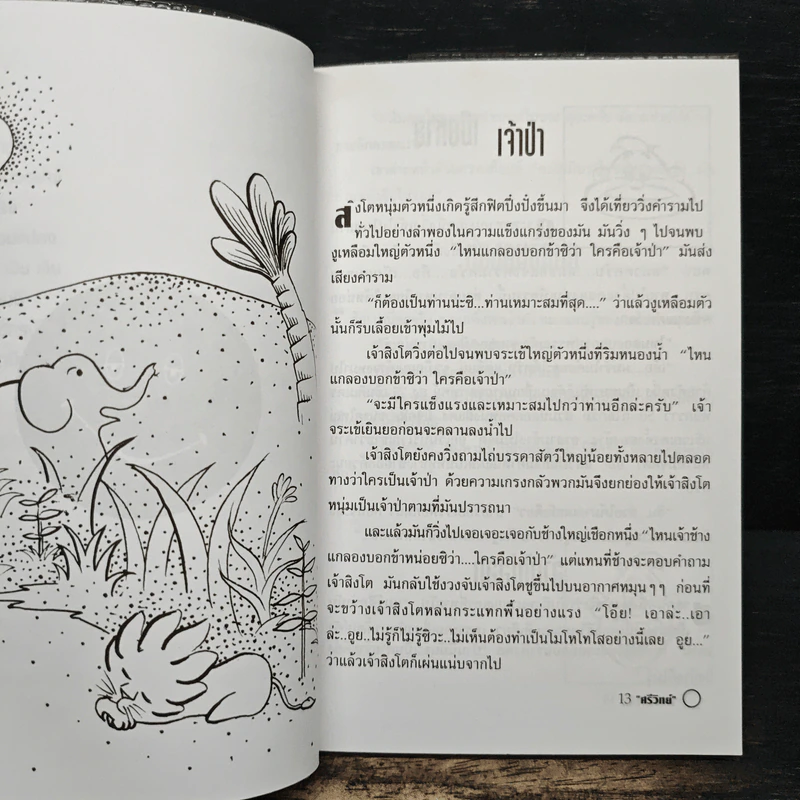 เจ้าป่า
สิงโตหนุ่มตัวหนึ่งเกิดรู้สึกฟิตปึ๋งปั๋งขึ้นมา จึงได้เที่ยววิ่งคำรามไป
ทั่วไปอย่างลำพองในความแข็งแกร่งของมัน มันวิ่ง ๆ ไปจนพบ
งูเหลือมใหญ่ตัวหนึ่ง “ไหนแกลองบอกข้าซิว่า ใครคือเจ้าป่า” มันส่ง
เสียงคำราม
“ก็ต้องเป็นท่านน่ะซิ...ท่านเหมาะสมที่สุด....” ว่าแล้วงูเหลือมตัว
นั้นก็รีบเลื้อยเข้าพุ่มไม้ไป
เจ้าสิงโตวิ่งต่อไปจนพบจระเข้ใหญ่ตัวหนึ่งที่ริมหนองน้ำ “ไหน
แกลองบอกข้าซิว่า ใครคือเจ้าป่า”
“จะมีใครแข็งแรงและเหมาะสมไปกว่าท่านอีกล่ะครับ” เจ้า
จระเข้เยินยอก่อนจะคลานลงน้ำไป
เจ้าสิงโตยังคงวิ่งถามไถ่บรรดาสัตว์ใหญ่น้อยทั้งหลายไปตลอด
ทางว่าใครเป็นเจ้าป่า ด้วยความเกรงกลัวพวกมันจึงยกย่องให้เจ้าสิงโต
หนุ่มเป็นเจ้าป่าตามที่มันปรารถนา
และแล้วมันก็วิ่งไปเจอเจอะเจอกับช้างใหญ่เชือกหนึ่ง “ไหนเจ้าช้าง
แกลองบอกข้าหน่อยซิว่า....ใครคือเจ้าป่า” แต่แทนที่ช้างจะตอบคำถาม
เจ้าสิงโต มันกลับใช้งวงจับเจ้าสิงโตชูขึ้นไปบนอากาศหมุนๆๆ ก่อนที่
จะขว้างเจ้าสิงโตหล่นกระแทกพื้นอย่างแรง “โอ๊ย! เอาล่ะ..เอา
ล่ะ..อูย..ไม่รู้ก็ไม่รู้ซิวะ..ไม่เห็นต้องทำเป็นโมโหโทโสอย่างนี้เลย อูย...”
ว่าแล้วเจ้าสิงโตก็เผ่นแน่บจากไป
13 “ศรีวิทย์”